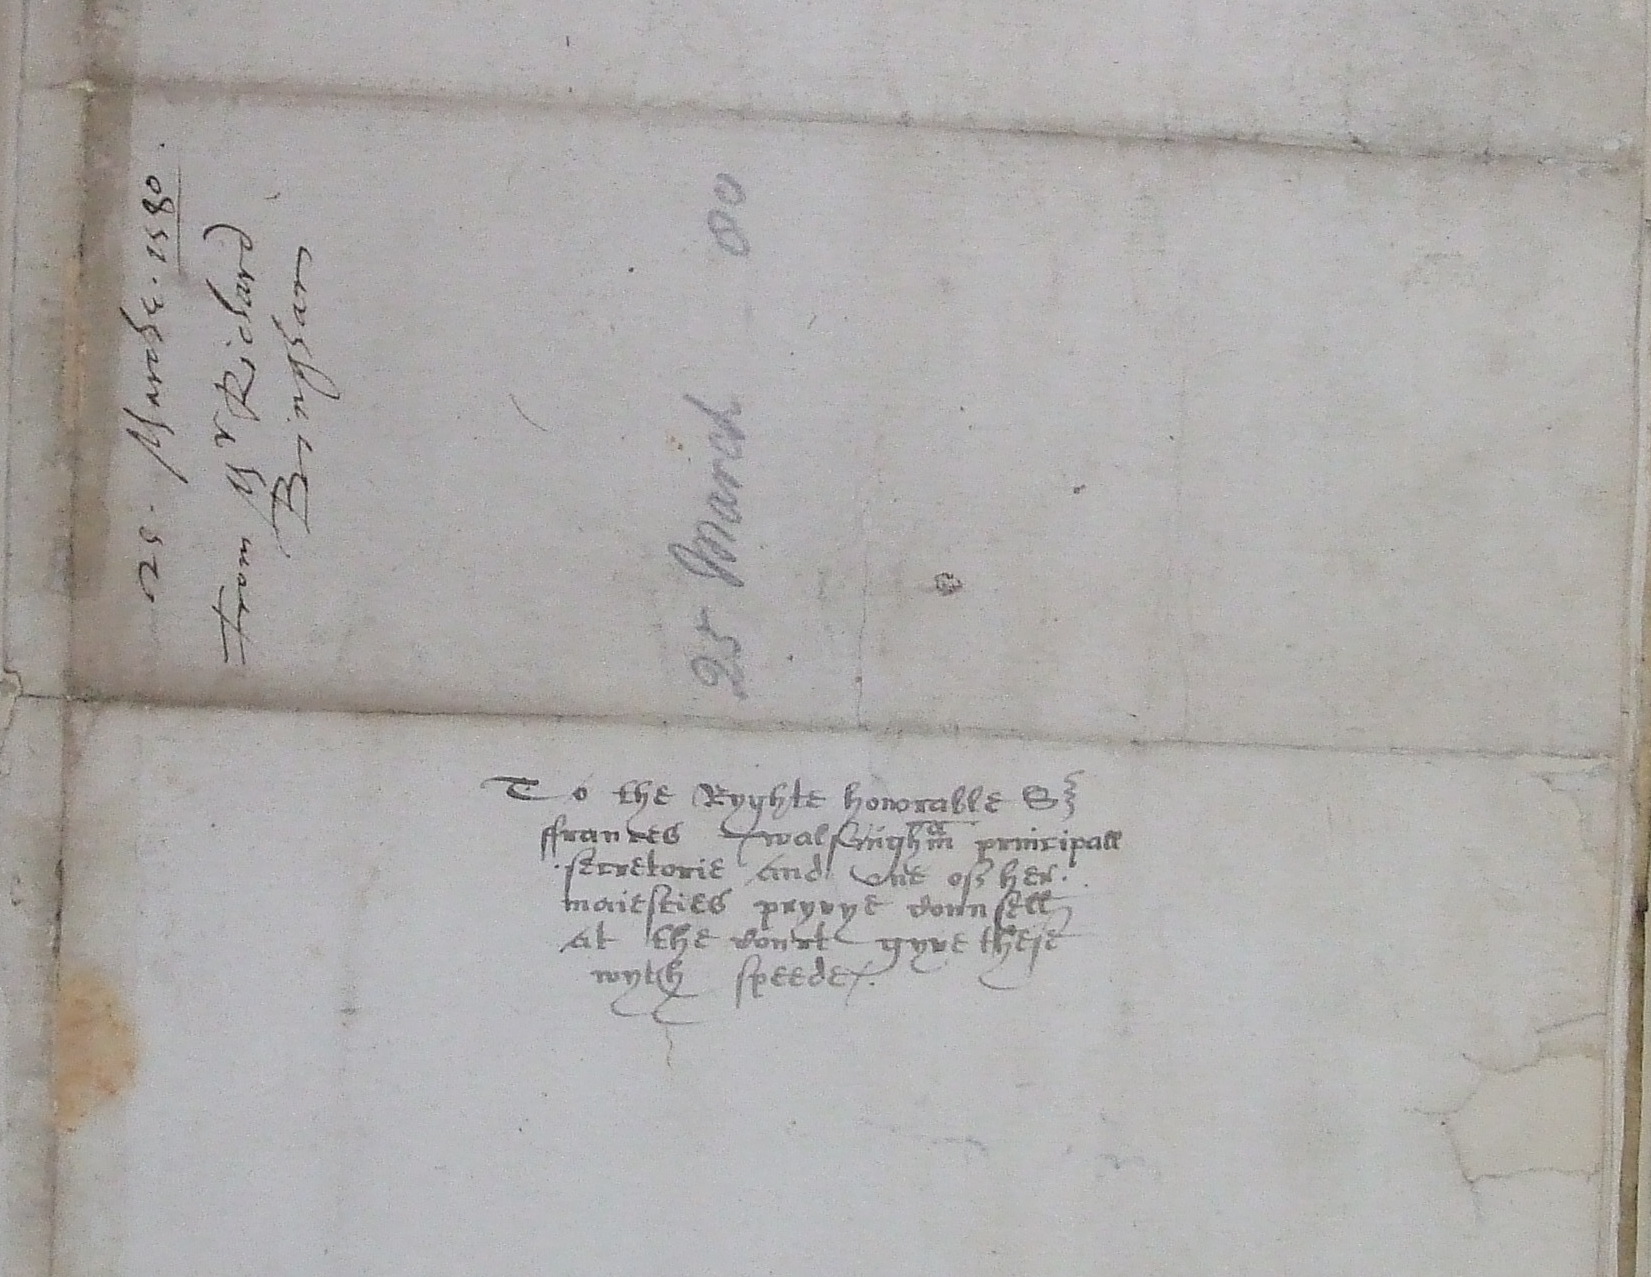 25. Marche. 1580.
From Mr Richard
Bingham
25 March 80
To the Ryghte honorable Sr
ffrances walsinghām principall
secretorie and one off her
maiesties pryvye counsell
at the court gyve these
wyth speede.